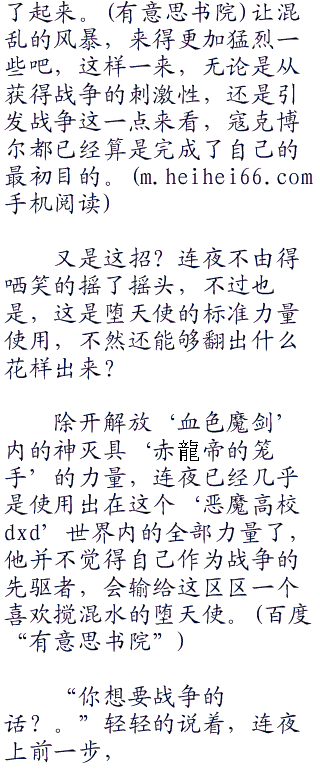 了起来。(有意思书院)让混
乱的风暴，来得更加猛烈一
些吧，这样一来，无论是从
获得战争的刺激性，还是引
发战争这一点来看，寇克博
尔都已经算是完成了自己的
最初目的。(m.heihei66.com
手机阅读)
又是这招？连夜不由得
哂笑的摇了摇头，不过也
是，这是堕天使的标准力量
使用，不然还能够翻出什么
花样出来？
除开解放‘血色魔剑’
内的神灭具‘赤龍帝的笼
手’的力量，连夜已经几乎
是使用出在这个‘恶魔高校
dxd’世界内的全部力量了，
他并不觉得自己作为战争的
先驱者，会输给这区区一个
喜欢搅混水的堕天使。(百度
“有意思书院”)
“你想要战争的
话？。”轻轻的说着，连夜
上前一步，